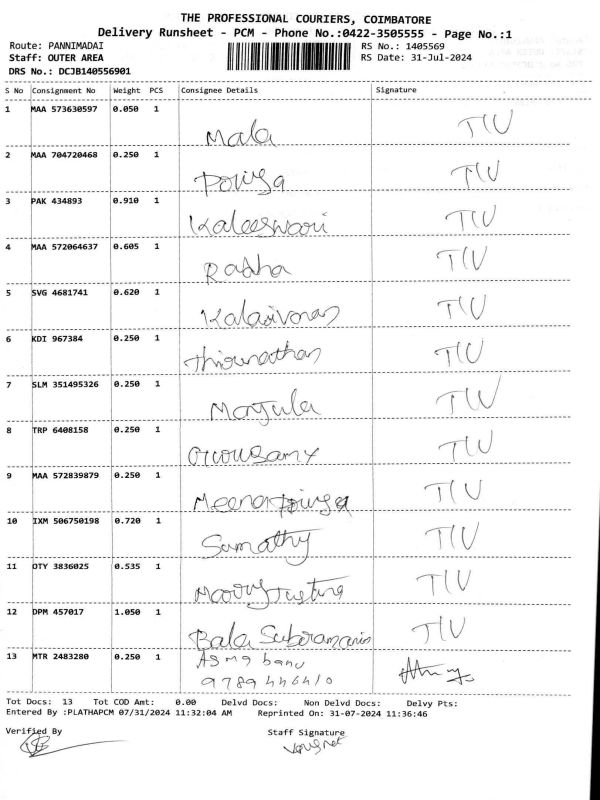 THE PROFESSIONAL COURIERS, COIMBATORE
Delivery Runsheet - PCM - Phone No.:0422-3505555 - Page No.:1
Route: PANNIMADAI RS No.: 1405569
Staff: OUTER AREA RS Date: 31-Jul-2024
DRS No.: DCJB140556901
S No Consignment No Weight PCS Consignee Details Signature
1 MAA 573630597 0.050 1
Mala TIU
2 MAA 704720468 0.250 1
Poriya TIU
3 PAK 434893 0.910 1
Kaleeswari TIU
4 MAA 572064637 0.605 1
Radha TIU
5 SVG 4681741 0.620 1
Kalaivanan TIU
6 KDI 967384 0.250 1
TIU
7 SLM 351495326 0.250 1
Manjula TIU
8 TRP 6408158 0.250 1
TIU
9 MAA 572839879 0.250 1
TIU
10 IXM 506750198 0.720 1
Sumathy TIU
11 OTY 3836025 0.535 1
TIU
12 DPM 457017 1.050 1
Bala Subramanian TIU
13 MTR 2483280 0.250 1 Asma banu
9789446410
Tot Docs: 13 Tot COD Amt: 0.00 Delvd Docs: Non Delvd Docs: Delvy Pts:
Entered By :PLATHAPCM 07/31/2024 11:32:04 AM Reprinted On: 31-07-2024 11:36:46
Verified By Staff Signature